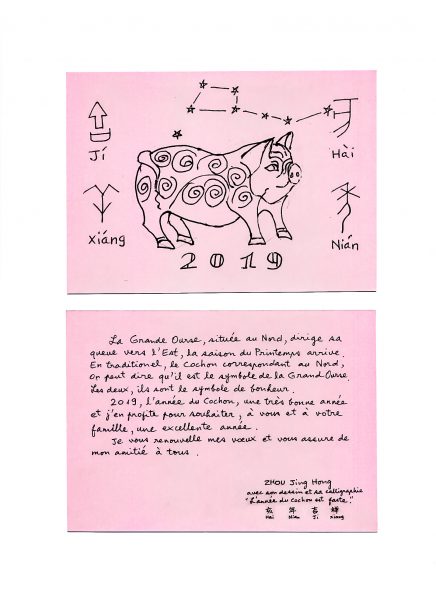 Jí
Hài
Xiáng
Nián
2019
La Grande Ourse, située au Nord, dirige sa
queue vers l'Est, la saison du Printemps arrive.
En traditionel, le Cochon correspondant au Nord,
On peut dire qu'il est le symbole de la Grand Ourse.
Les deux, ils sont le symbole de bonheur.
2019, l'année du Cochon, une très bonne année
et j'en profite pour souhaiter, à vous et à votre
famille, une excellente année.
Je vous renouvelle mes vœux et vous assure de
mon amitié à tous.
ZHOU Jing Hong
avec son dessin et sa calligraphie
"L'année du Cochon est faste."
亥 年 吉 祥
Hai Nian Ji Xiang